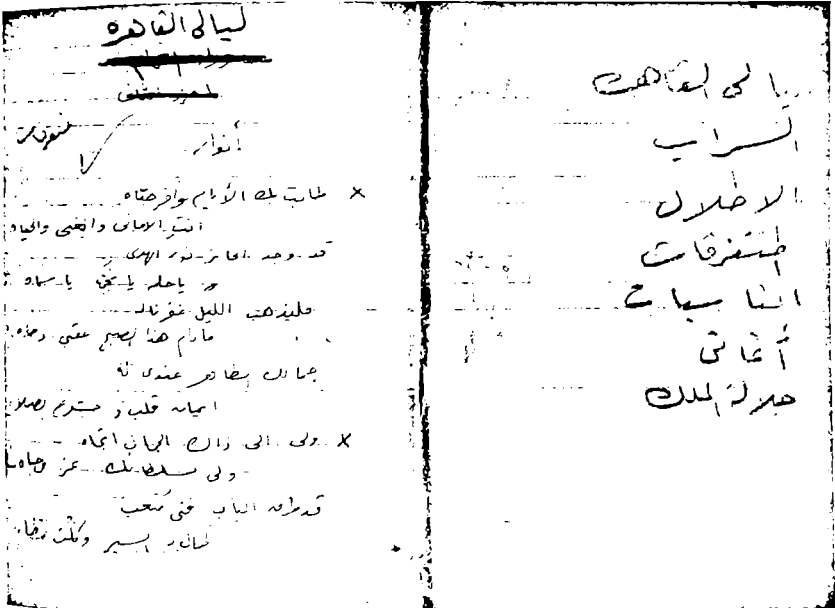 يا لى القاهرة
السراب
الاطلال
المتفرقات
المناسبات
أغانى
جلالة الملك
ليالى القاهرة
متفرقات
أنوار
طابت بك الأيام وافرحتاه
أنت الأمانى والغنى والحياه
قد وجد الحائر نور الهدى
يا سماه
فليذهب الليل غفرنا له
مادام هذا الصبح عقبى دجاه
جمالك الطاهر عندى له
ايمان قلب و
ولى الى ذاك الجمال اتجاه
ولى بسلطانك عز وجاه
الباب فتى متعب
السير وكلت خطاه